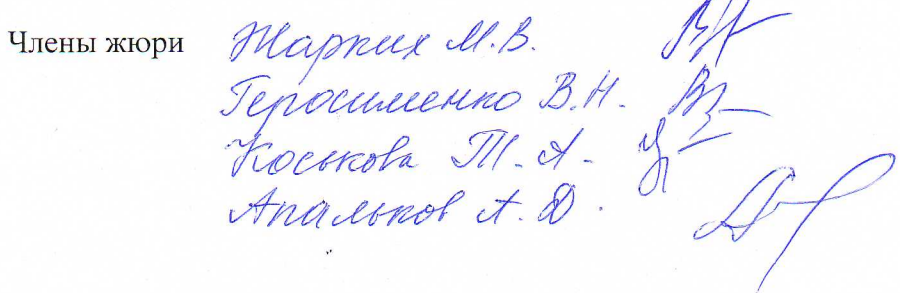 Члены жюри Жарких М.В.
Герасименко В.Н.
Коськова Т.А.
Апальков А.Д.